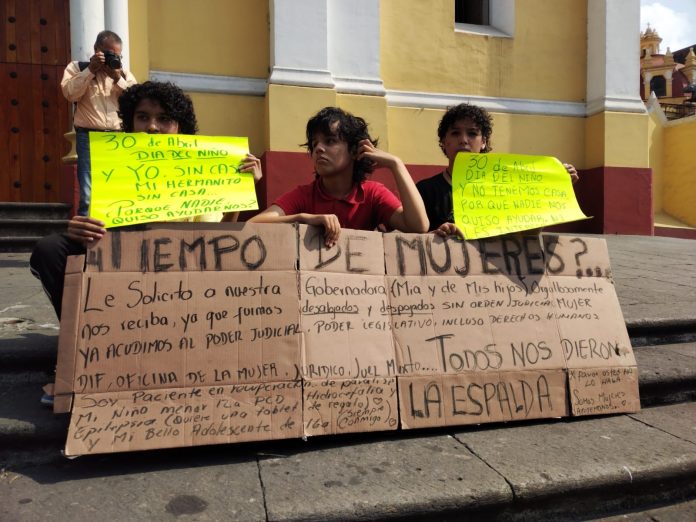 30 de Abril
DIA DEL NIÑO
Y YO. SIN CASA
MI HERMANITO
SIN CASA...
PORQUE NADIE
QUISO AYUDARNOS
30 de Abril
DIA DEL NIÑO
Y NO TENEMOS CASA.
PORQUE NADIE NOS
QUISO AYUDAR.
¿¡TIEMPO DE MUJERES?...
Le Solicito a nuestra Gobernadora (Mia y de Mis hijos) Orgullosamente
nos reciba, ya que fuimos desalojados y despojados SIN ORDEN JUDICIAL MUJER
YA ACUDIMOS AL PODER JUDICIAL, PODER LEGISLATIVO, INCLUSO DERECHOS HUMANOS
DIF, OFICINA DE LA MUJER, JURIDICO, TODOS NOS DIERON
LA ESPALDA
Soy Paciente en recuperación de paralisis
Mi Niño menor 12a PCD Hidrocefalia y
Epilepsia (Quiere una tablet de regalo)
Y Mi Bello Adolescente de 16a (Siempre Conmigo)
X Favor USTED NO
LO HAGA
Somos Mujeres